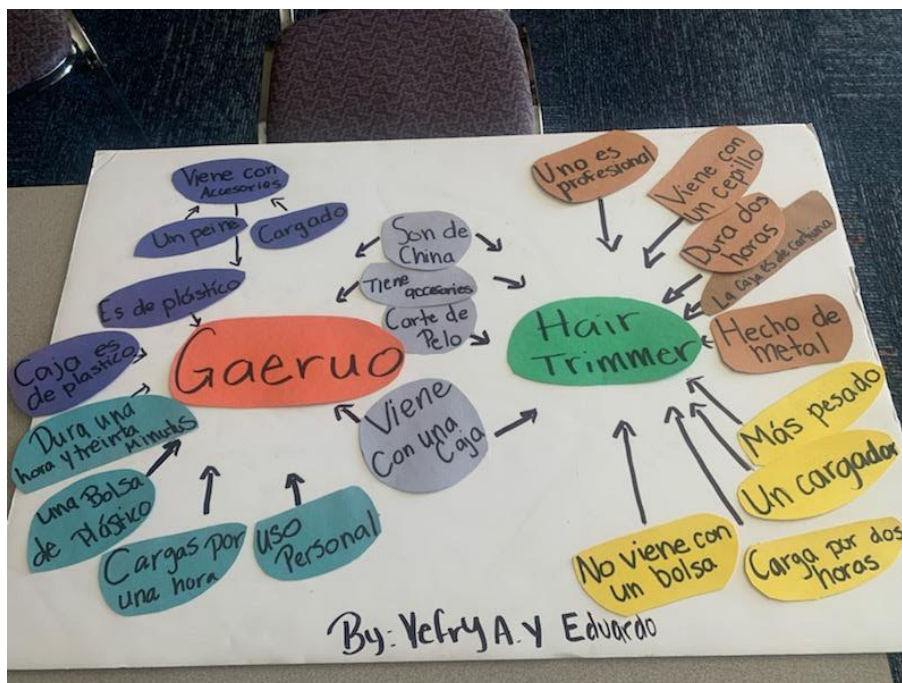 Viene con
Accesorios
Un peine
Cargado
Es de plástico
Caja es
de plastico
Dura una
hora y treinta
Minutos
una Bolsa
de Plástico
Cargas por
una hora
uso
Personal
Gaeruo
Son de
China
Tiene accesories
Corte de
Pelo
Viene
Con una
Caja
Hair
Trimmer
Uno es
profesional
Viene con
un cepillo
Dura dos
horas
La Caja es de Cartuna
Hecho de
metal
Más pesado
Un cargador
Carga por dos
horas
No viene con
un bolsa
By: Yefry A. y Eduardo